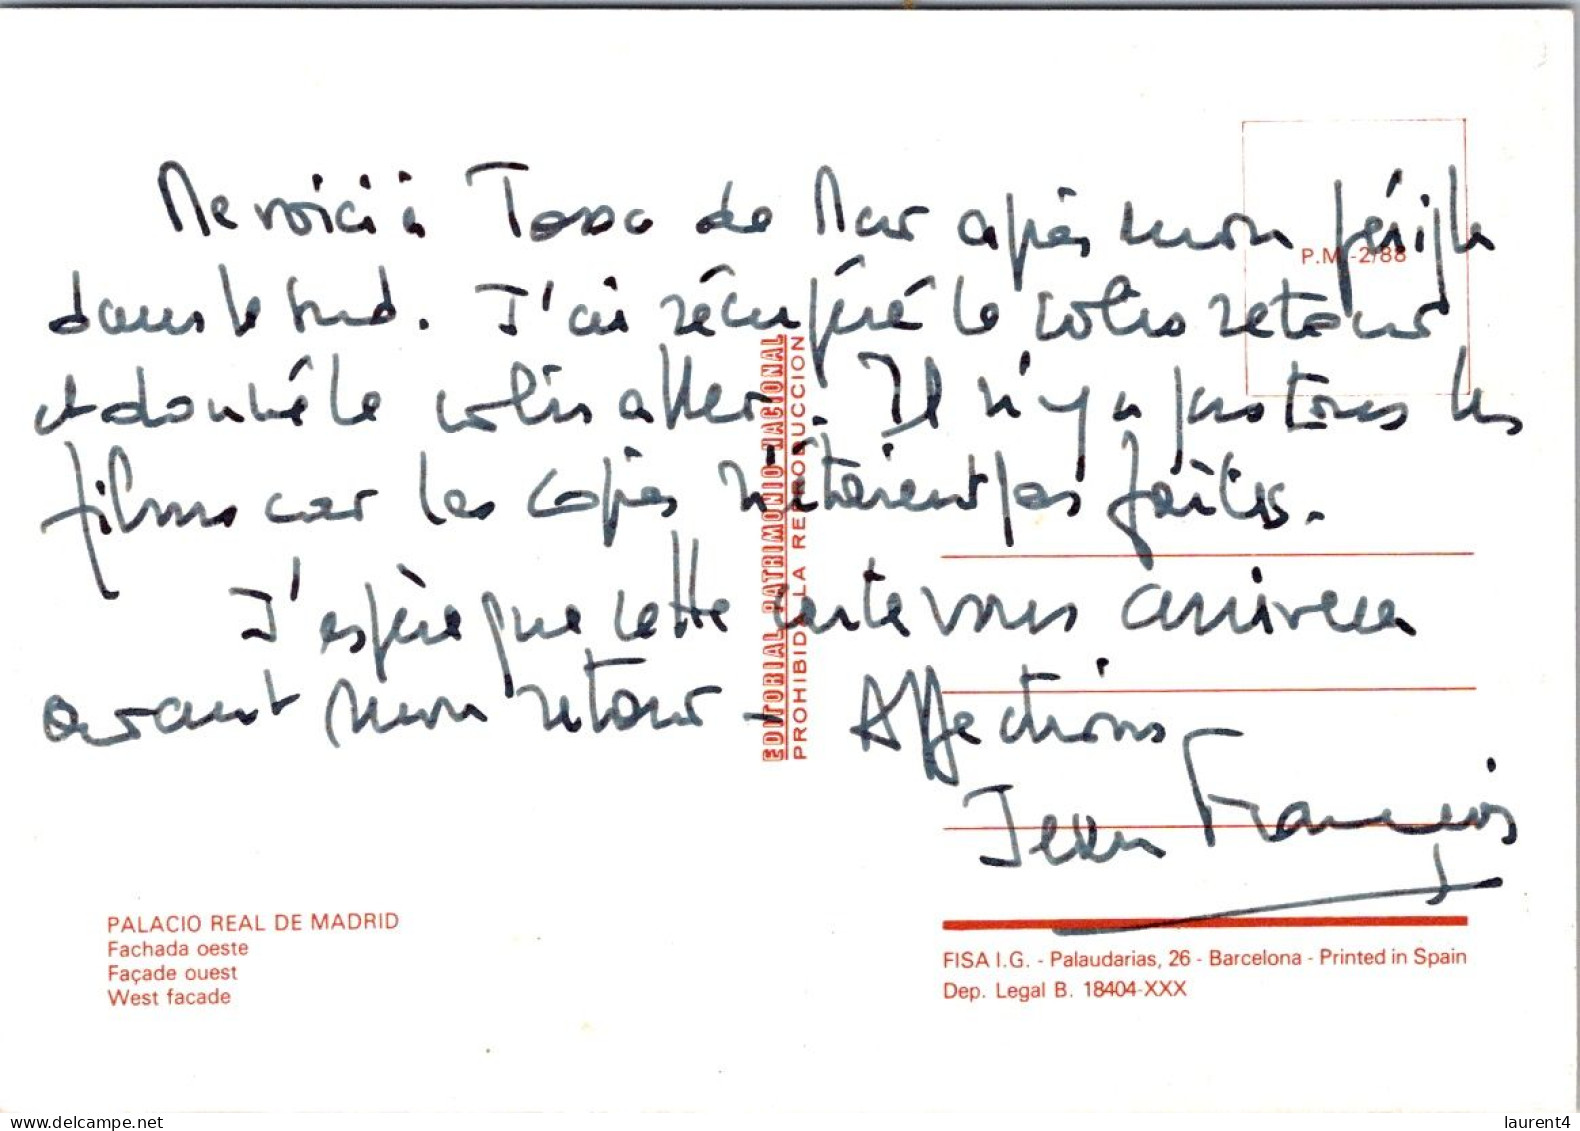 Me voici à Tossa de Mar après mon périple
dans le sud. J'ai récupéré le colis retour
et donné le colis aller. Il n'y a pas tous les
films car les copies n'étaient pas faîtes.
J'espère que cette carte vous arrivera
avant mon retour - Affections
Jean François
P.M.-2/88
EDITORIAL PATRIMONIO NACIONAL
PROHIBIDA LA REPRODUCCION
PALACIO REAL DE MADRID
Fachada oeste
Façade ouest
West facade
FISA I.G. - Palaudarias, 26 - Barcelona - Printed in Spain
Dep. Legal B. 18404-XXX
laurent4